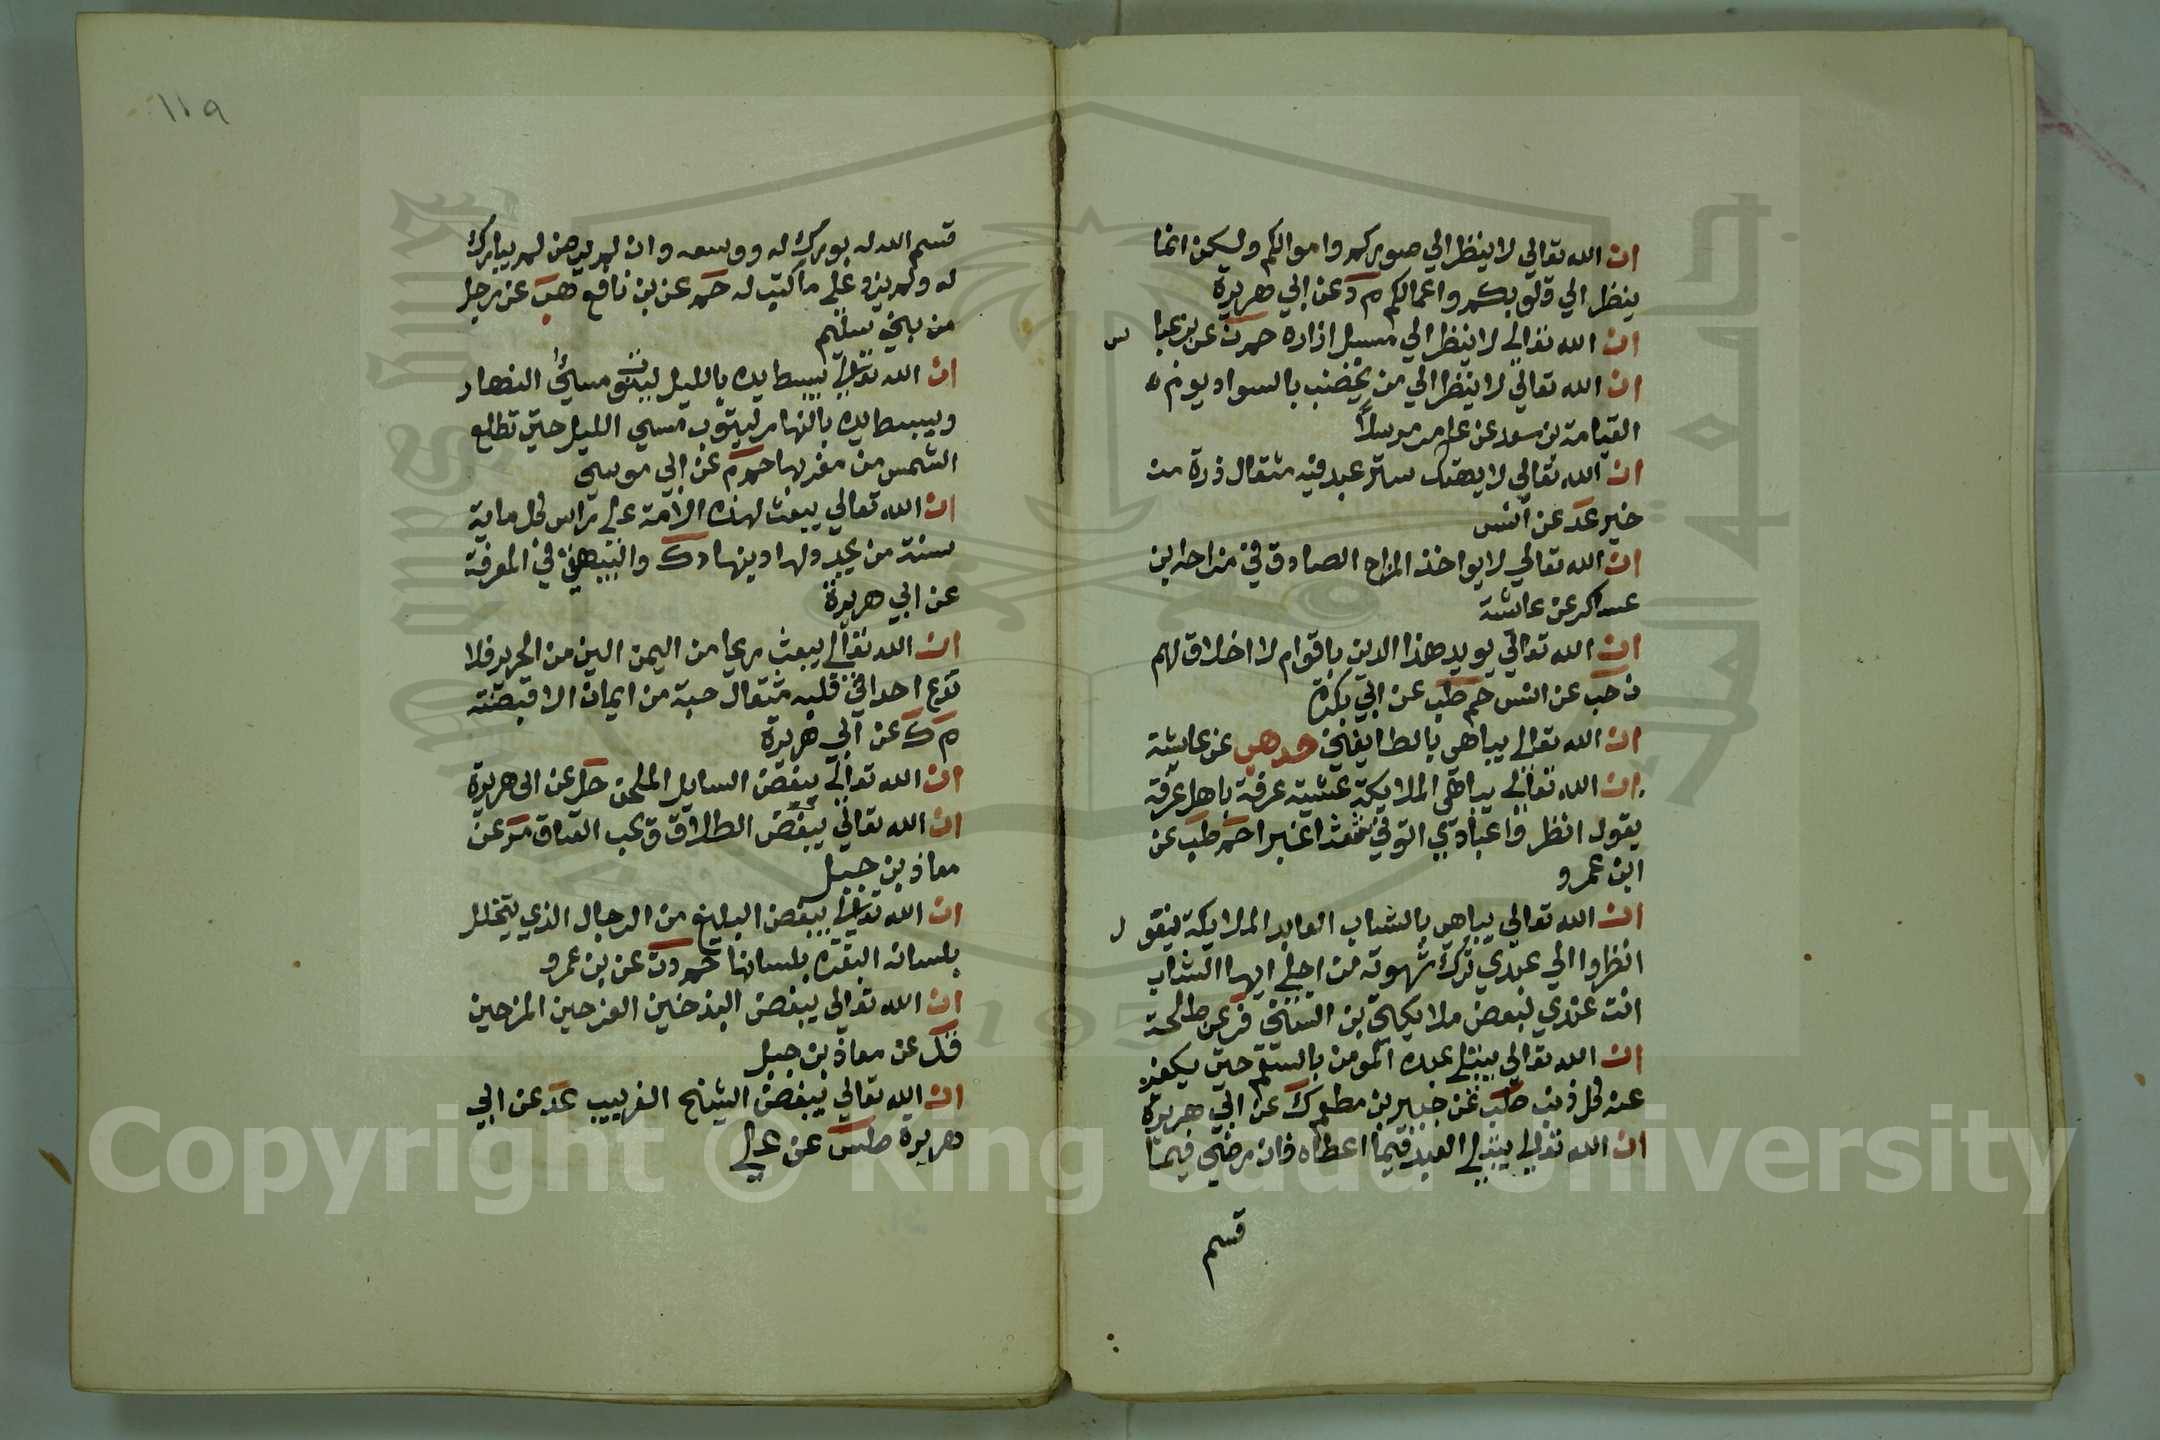 ان الله تعالي لا ينظر الي صوركم واموالكم ولكن انما
ينظر الي قلوبكم واعمالكم م د عن ابي هريرة
ان الله تعالي لا ينظر الي مسبل ازاره حم ن عن بن عبا س
ان الله تعالي لا ينظر الي من يخضب بالسواد يوم ه
القيامة بن سعد عن عامر مرسلاً
ان الله تعالي لا يهتك ستر عبد فيه مثقال ذرة من
خير عد عن انس
ان الله تعالي لا يواخذ المزاح الصادق في مزاحه ابن
عساكر عن عايشة
ان الله تعالي يويد هذا الدين باقوام لا اخلاق لهم
ن حب عن انس حم طب عن ابي بكرة
ان الله تعالي يباهي بالطايفين حل هب عن عايشة
ان الله تعالي يباهي الملايكة عشية عرفة باهل عرفة
يقول انظروا عبادي اتوني شعثا غبرا حم طب عن
ابن عمرو
ان الله تعالي يباهي بالشاب العابد الملايكة فيقو ل
انظروا الي عبدي ترك شهوته من اجلي ايها الشاب
انت عندي كبعض ملايكتي بن السني فر عن طلحة
ان الله تعالي يبتلي عبده المومن بالسقم حتي يكفر
عنه كل ذنب طب عن جبير بن مطعم ك عن ابي هريرة
ان الله تعالي يبتلي العبد فيما اعطاه فان رضي فيما
قسم
١١٩
قسم الله له بورك له ووسعه وان لم يرض لم يبارك
له ولم يزد علي ما كتب له حم عن بن نافع هب عن رجل
من بني سليم
ان الله تعالي يبسط يده بالليل ليتوب مسئ النهار
ويبسط يده بالنهار ليتوب مسي الليل حتي تطلع
الشمس من مغربها حم م عن ابي موسي
ان الله تعالي يبعث لهذه الامة علي راس كل ماية
سنة من يجدد لها دينها د ك والبيهقي في المعرفة
عن ابي هريرة
ان الله تعالي يبعث ريحا من اليمن الين من الحرير فلا
تدع احدا في قلبه مثقال حبة من ايمان الا قبضته
م ك عن ابي هريرة
ان الله تعالي يبغض السايل الملحف حل عن ابي هريرة
ان الله تعالي يبغض الطلاق ويحب العتاق فر عن
معاذ بن جبل
ان الله تعالي يبغض البليغ من الرجال الذي يتخلل
بلسانه البقرة بلسانها حم د ت عن بن عمرو
ان الله تعالي يبغض البذخين الفرحين المرحين
فر عن معاذ بن جبل
ان الله تعالي يبغض الشيخ الغربيب عد عن ابي
هريرة طس عن علي
Copyright © King Saud University
1957